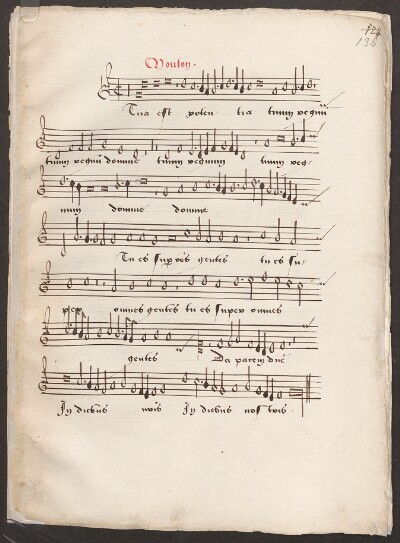 124
136
Mouton.
Tua est poten tia tuum regnū
tuum regnū domine tuum regnum tuum reg-
num domine domine
Tu es super oēs gentes tu es su-
per omnes gentes tu es super omnes
gentes Da pacem dn̄e
In diebus nr̄is In diebus nostris.